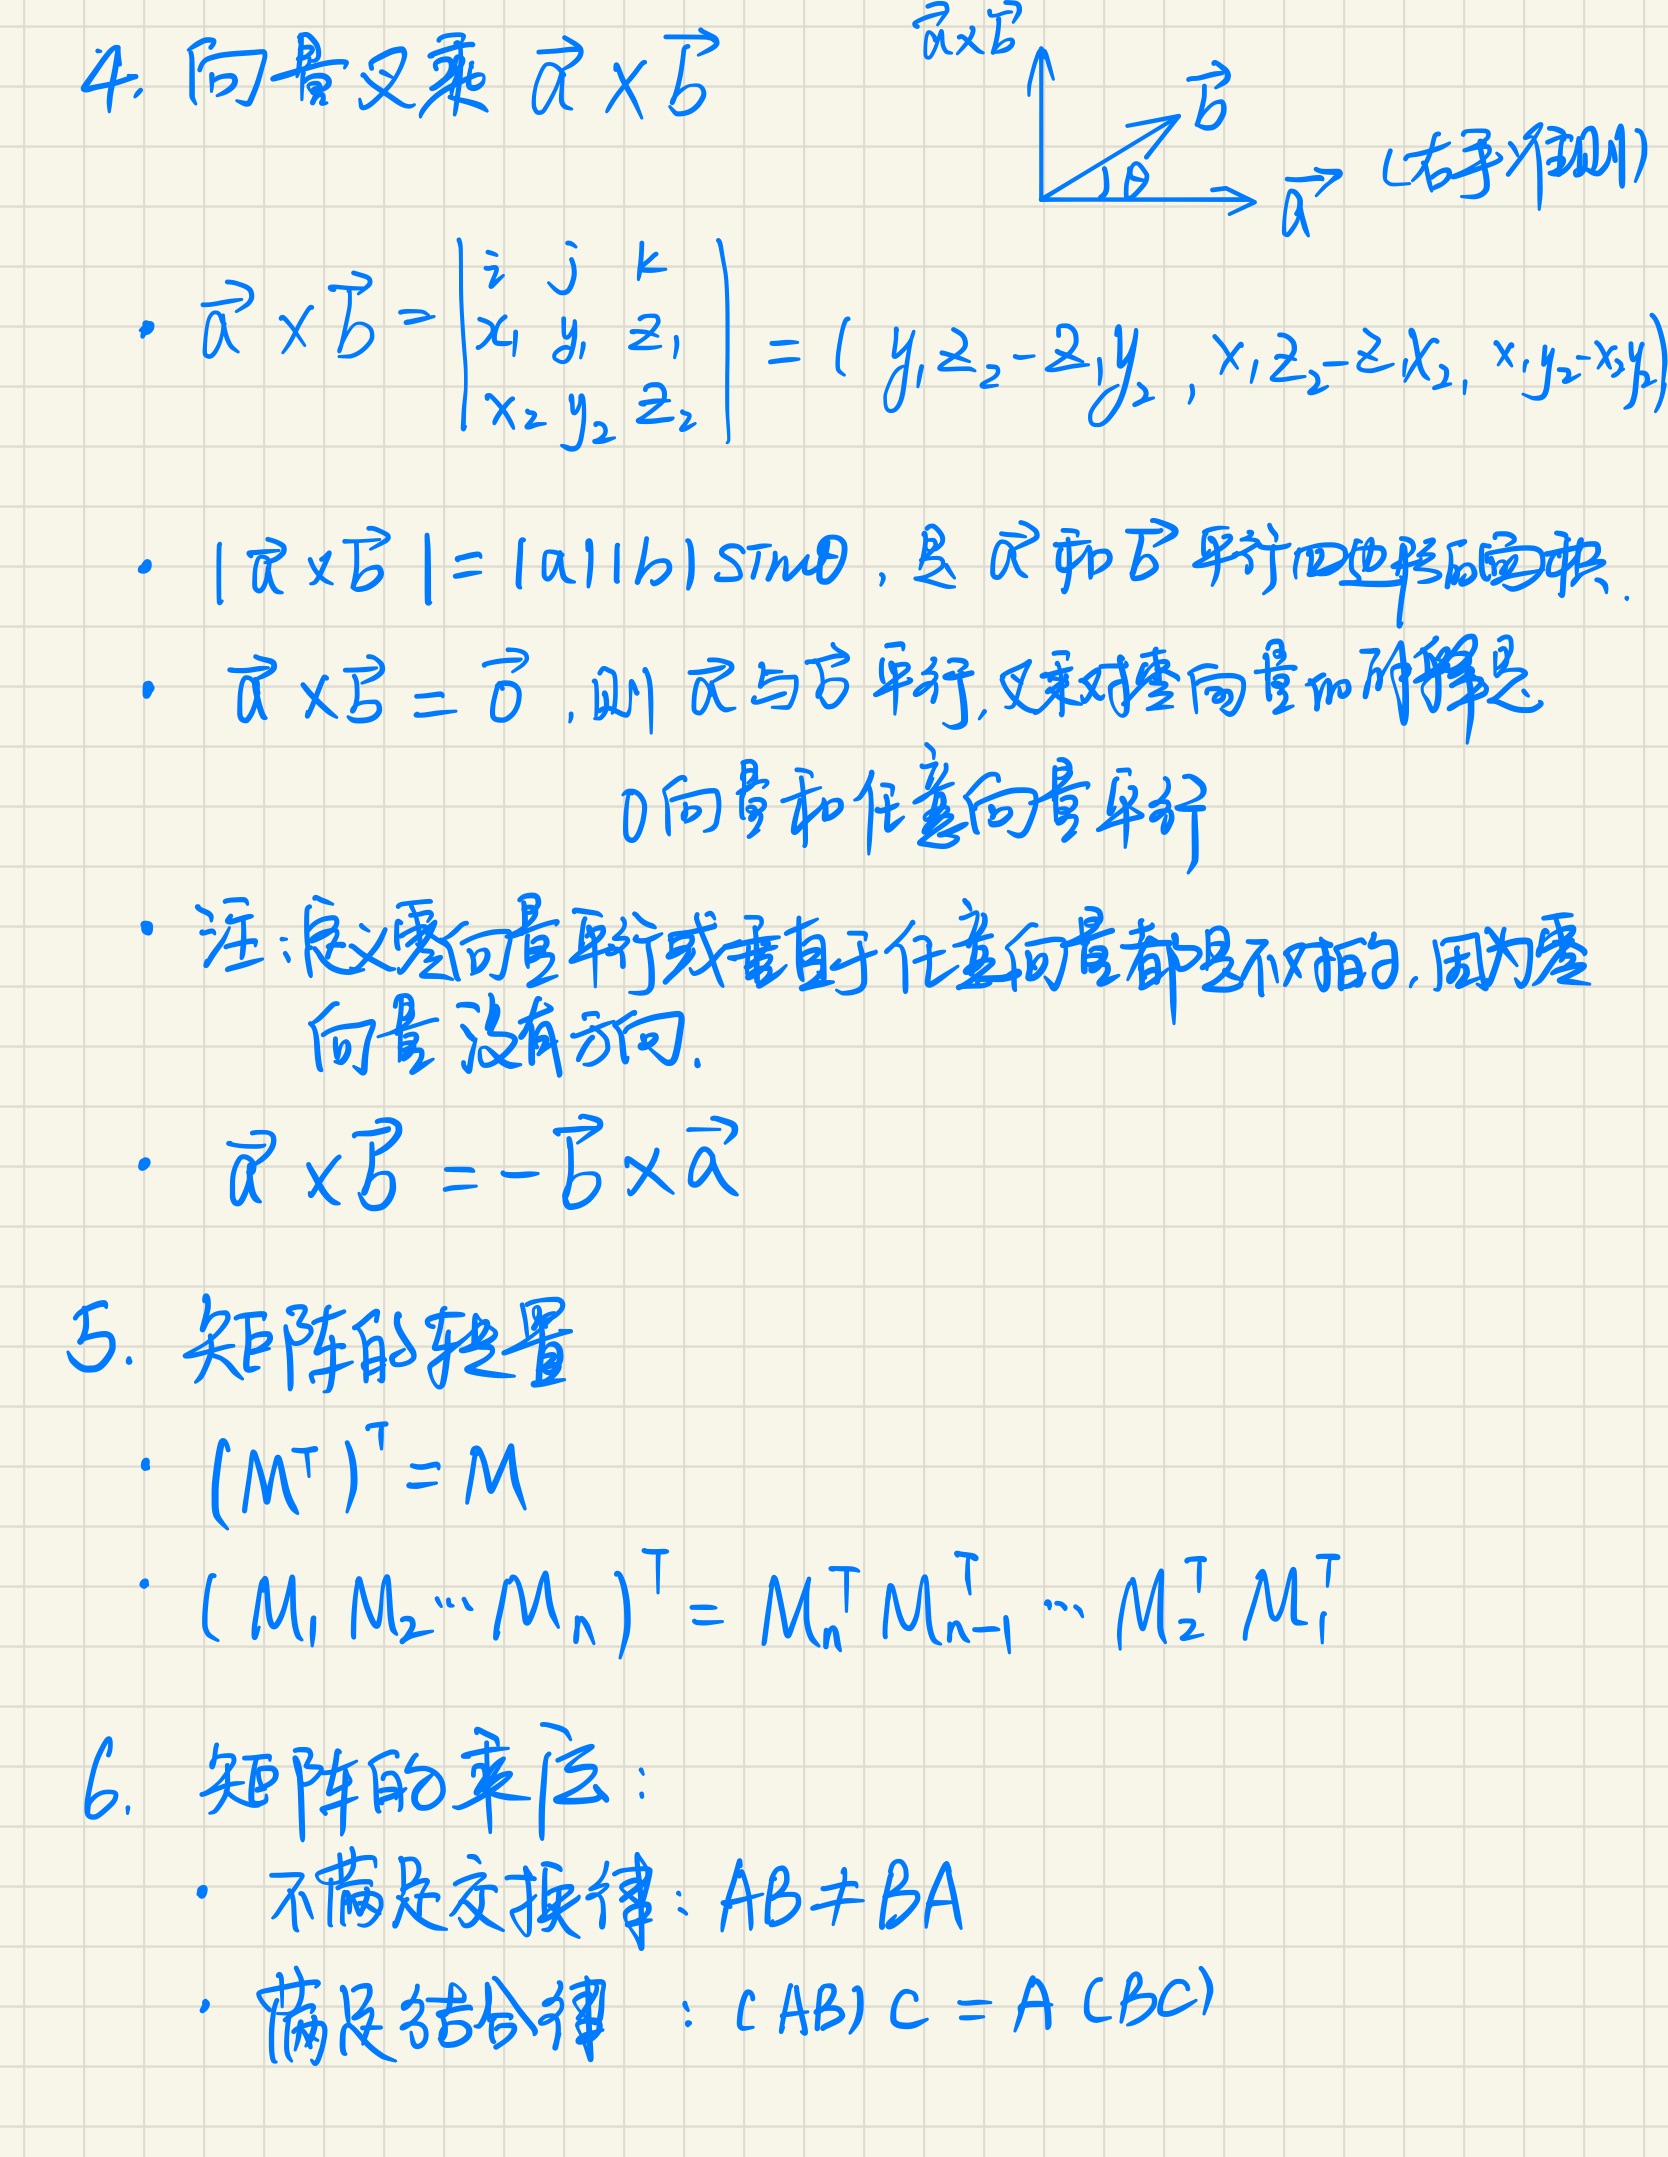 4. 向量叉乘 a⃗ × b⃗
a⃗×b⃗
b⃗
θ
a⃗ (右手准则)
· a⃗ × b⃗ = | i j k ; x₁ y₁ z₁ ; x₂ y₂ z₂ | = ( y₁z₂-z₁y₂ , x₁z₂-z₁x₂, x₁y₂-x₂y₂)
· |a⃗ × b⃗| = |a||b| sinθ , 是 a⃗ 和 b⃗ 平行四边形的面积.
· a⃗ × b⃗ = 0⃗ , 则 a⃗ 与 b⃗ 平行, 叉乘对零向量的解释是
0向量和任意向量平行
· 注:定义零向量平行或垂直于任意向量都是不对的,因为零
向量没有方向.
· a⃗ × b⃗ = -b⃗ × a⃗
5. 矩阵的转置
· (Mᵀ)ᵀ = M
· (M₁ M₂ ... Mₙ)ᵀ = Mₙᵀ Mₙ₋₁ᵀ ... M₂ᵀ M₁ᵀ
6. 矩阵的乘法:
· 不满足交换律: AB≠BA
· 满足结合律 : (AB) C = A (BC)